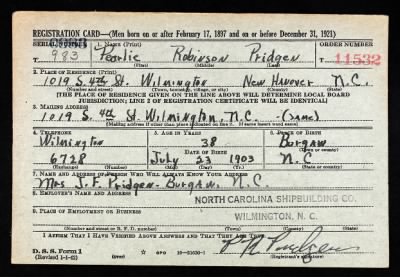 REGISTRATION CARD—(Men born on or after February 17, 1897 and on or before December 31, 1921)
SERIAL NUMBER 1. NAME (Print) ORDER NUMBER
T 983 Pearlie Robinson Pridgen T 11532
(First) (Middle) (Last)
2. PLACE OF RESIDENCE (Print)
1019 S. 4th St. Wilmington New Hanover N.C.
(Number and street) (Town, township, village, or city) (County) (State)
[THE PLACE OF RESIDENCE GIVEN ON THE LINE ABOVE WILL DETERMINE LOCAL BOARD
JURISDICTION; LINE 2 OF REGISTRATION CERTIFICATE WILL BE IDENTICAL]
3. MAILING ADDRESS
1019 S. 4th St. Wilmington, N.C. (same)
[Mailing address if other than place indicated on line 2. If same insert word same]
4. TELEPHONE 5. AGE IN YEARS 6. PLACE OF BIRTH
Wilmington 38 Burgaw
DATE OF BIRTH (Town or county)
6728 July 23 1903 N.C
(Exchange) (Number) (Mo.) (Day) (Yr.) (State or country)
7. NAME AND ADDRESS OF PERSON WHO WILL ALWAYS KNOW YOUR ADDRESS
Mrs J.F. Pridgen-Burgaw, N.C.
8. EMPLOYER'S NAME AND ADDRESS
NORTH CAROLINA SHIPBUILDING CO.
9. PLACE OF EMPLOYMENT OR BUSINESS
WILMINGTON, N. C.
(Number and street or R. F. D. number) (Town) (County) (State)
I AFFIRM THAT I HAVE VERIFIED ABOVE ANSWERS AND THAT THEY ARE TRUE.
D. S. S. Form 1
(Revised 1-1-42) (over) GPO 16—21630-1
P R Pridgen